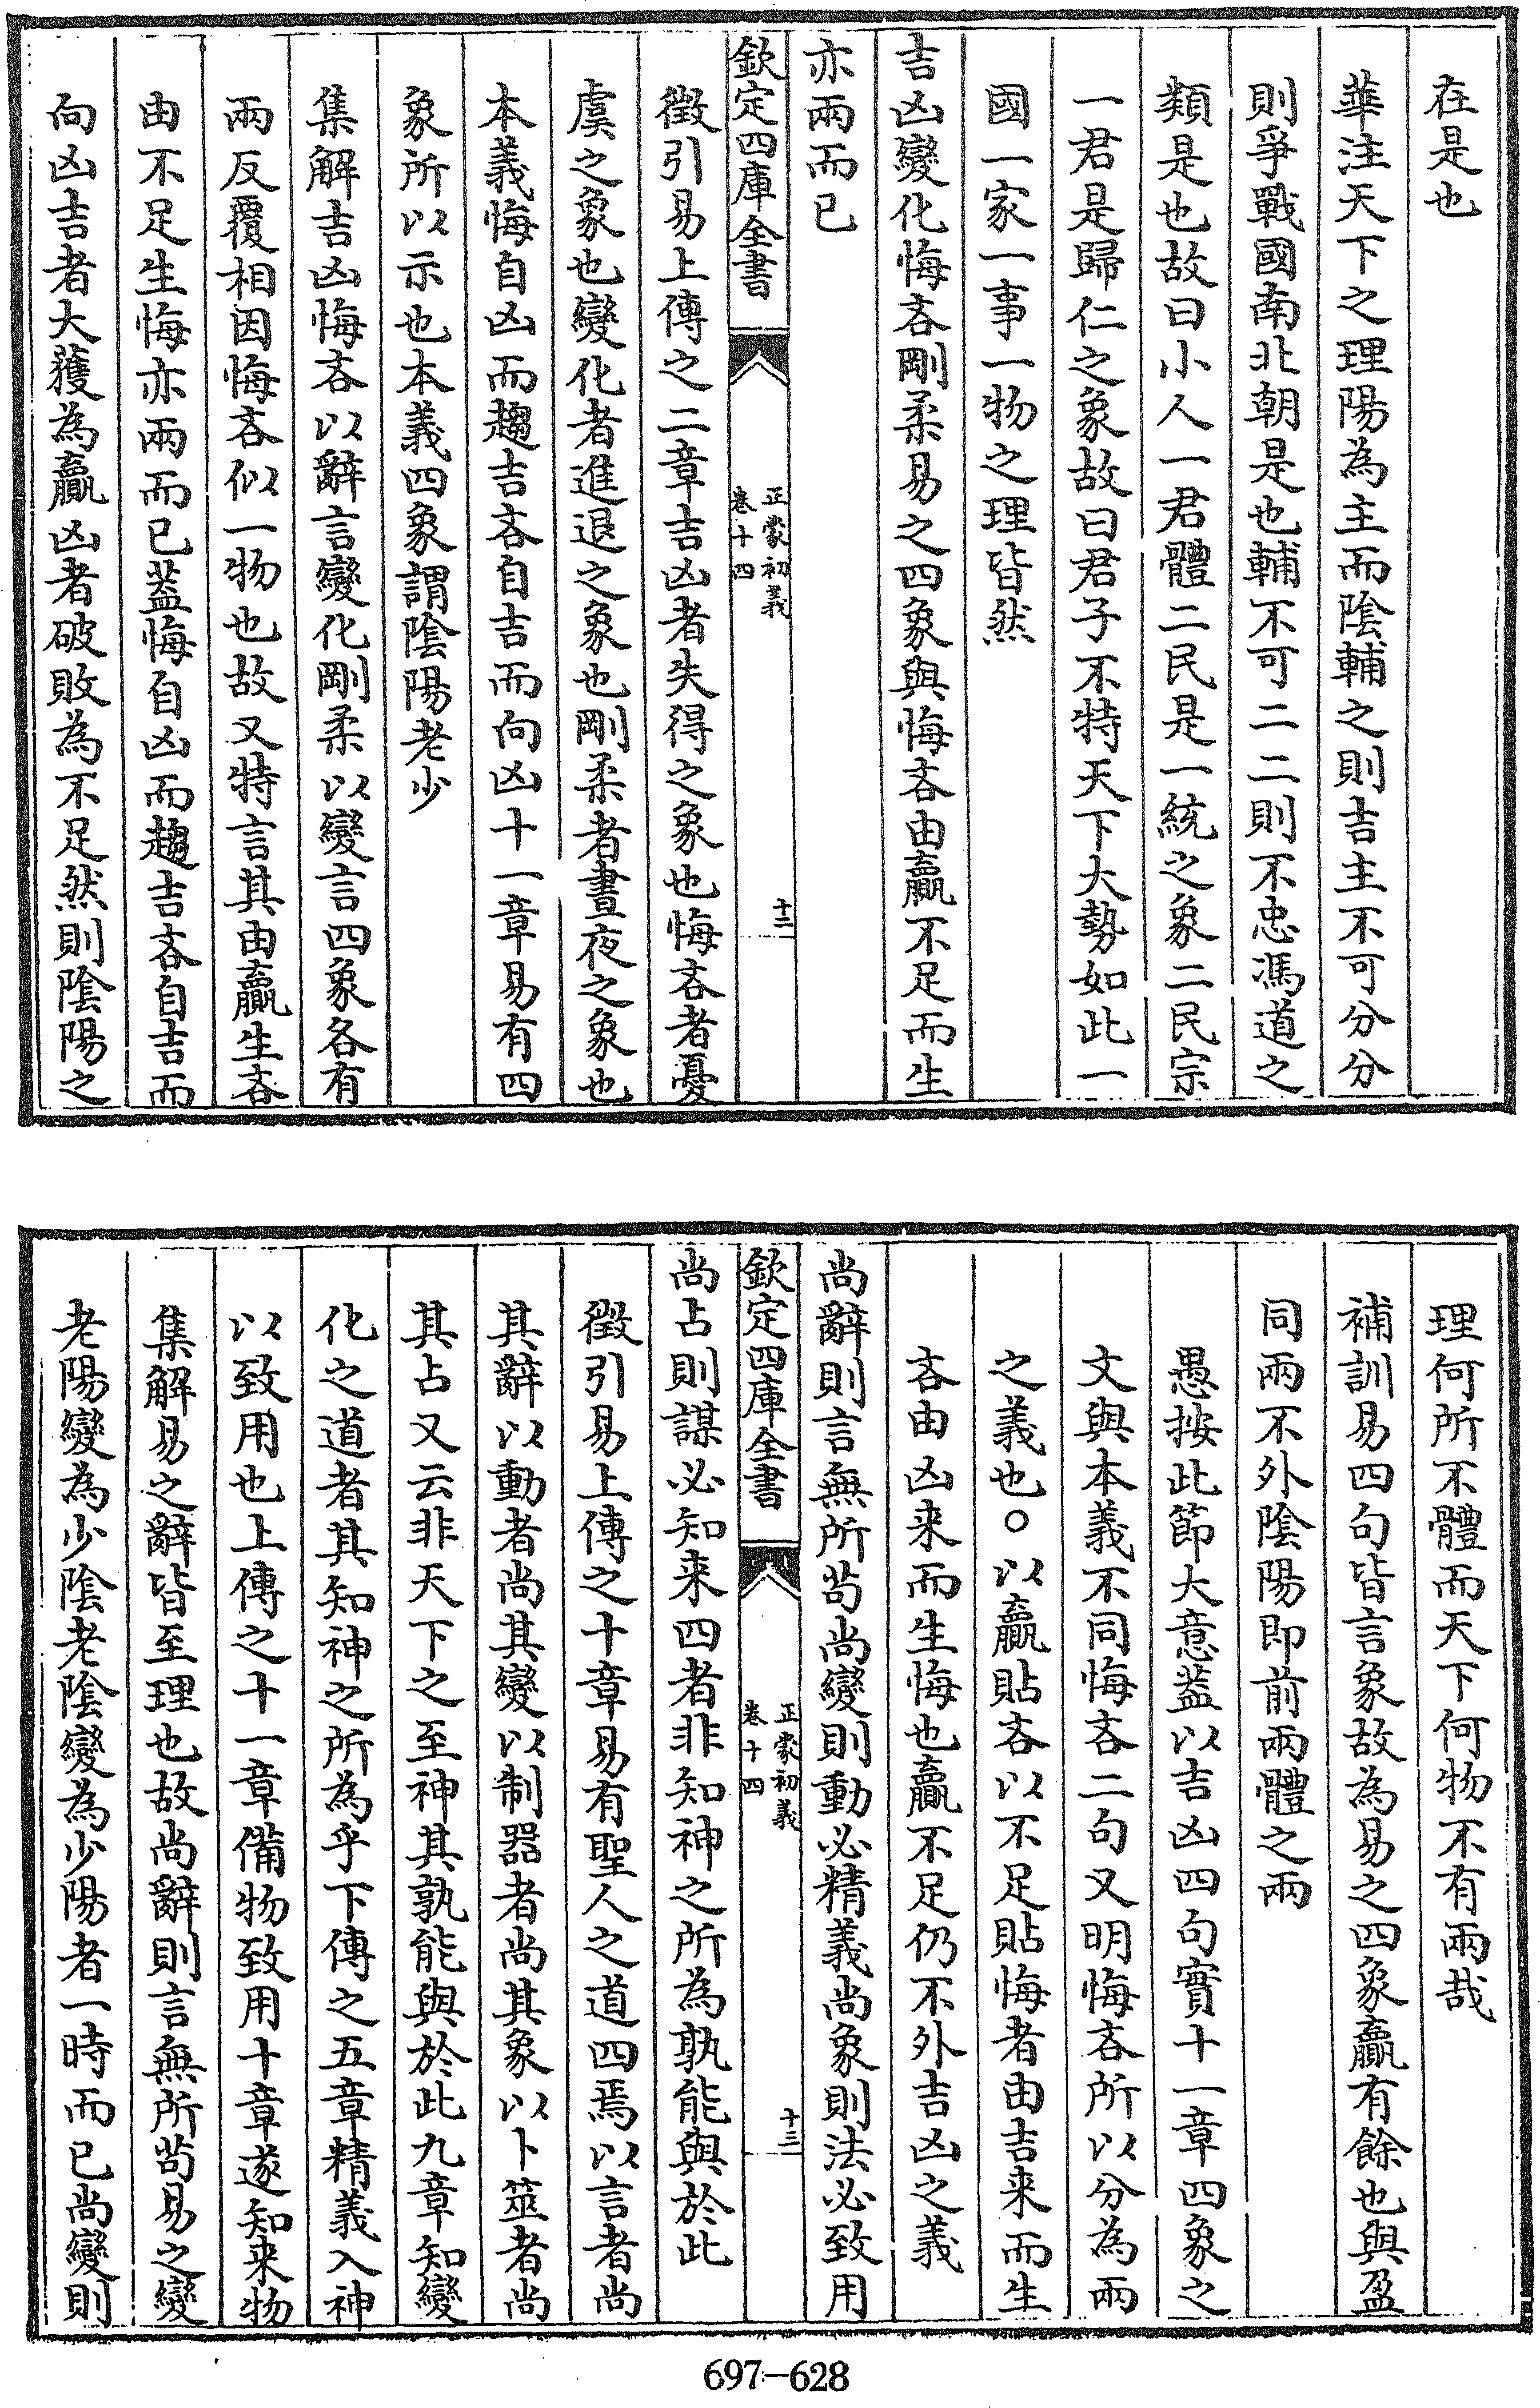 在是也
華注天下之理陽為主而陰輔之則吉主不可分分
則爭戰國南北朝是也輔不可二二則不忠馮道之
類是也故曰小人一君體二民是一統之象二民宗
一君是歸仁之象故曰君子不特天下大勢如此一
國一家一事一物之理皆然
吉凶變化悔吝剛柔易之四象與悔吝由贏不足而生
亦兩而已
欽定四庫全書
正蒙初義
卷十四
十二
徵引易上傳之二章吉凶者失得之象也悔吝者憂
虞之象也變化者進退之象也剛柔者晝夜之象也
本義悔自凶而趨吉吝自吉而向凶十一章易有四
象所以示也本義四象謂陰陽老少
集解吉凶悔吝以辭言變化剛柔以變言四象各有
兩反覆相因悔吝似一物也故又特言其由贏生吝
由不足生悔亦兩而已蓋悔自凶而趨吉吝自吉而
向凶吉者大獲為贏凶者破敗為不足然則陰陽之
理何所不體而天下何物不有兩哉
補訓易四句皆言象故為易之四象贏有餘也與盈
同兩不外陰陽即前兩體之兩
愚按此節大意蓋以吉凶四句實十一章四象之
文與本義不同悔吝二句又明悔吝所以分為兩
之義也○以贏貼吝以不足貼悔者由吉来而生
吝由凶来而生悔也贏不足仍不外吉凶之義
尚辭則言無所苟尚變則動必精義尚象則法必致用
欽定四庫全書
正蒙初義
卷十四
十三
尚占則謀必知来四者非知神之所為孰能與於此
徵引易上傳之十章易有聖人之道四焉以言者尚
其辭以動者尚其變以制器者尚其象以卜筮者尚
其占又云非天下之至神其孰能與於此九章知變
化之道者其知神之所為乎下傳之五章精義入神
以致用也上傳之十一章備物致用十章遂知来物
集解易之辭皆至理也故尚辭則言無所苟易之變
老陽變為少陰老陰變為少陽者一時而已尚變則
697-628